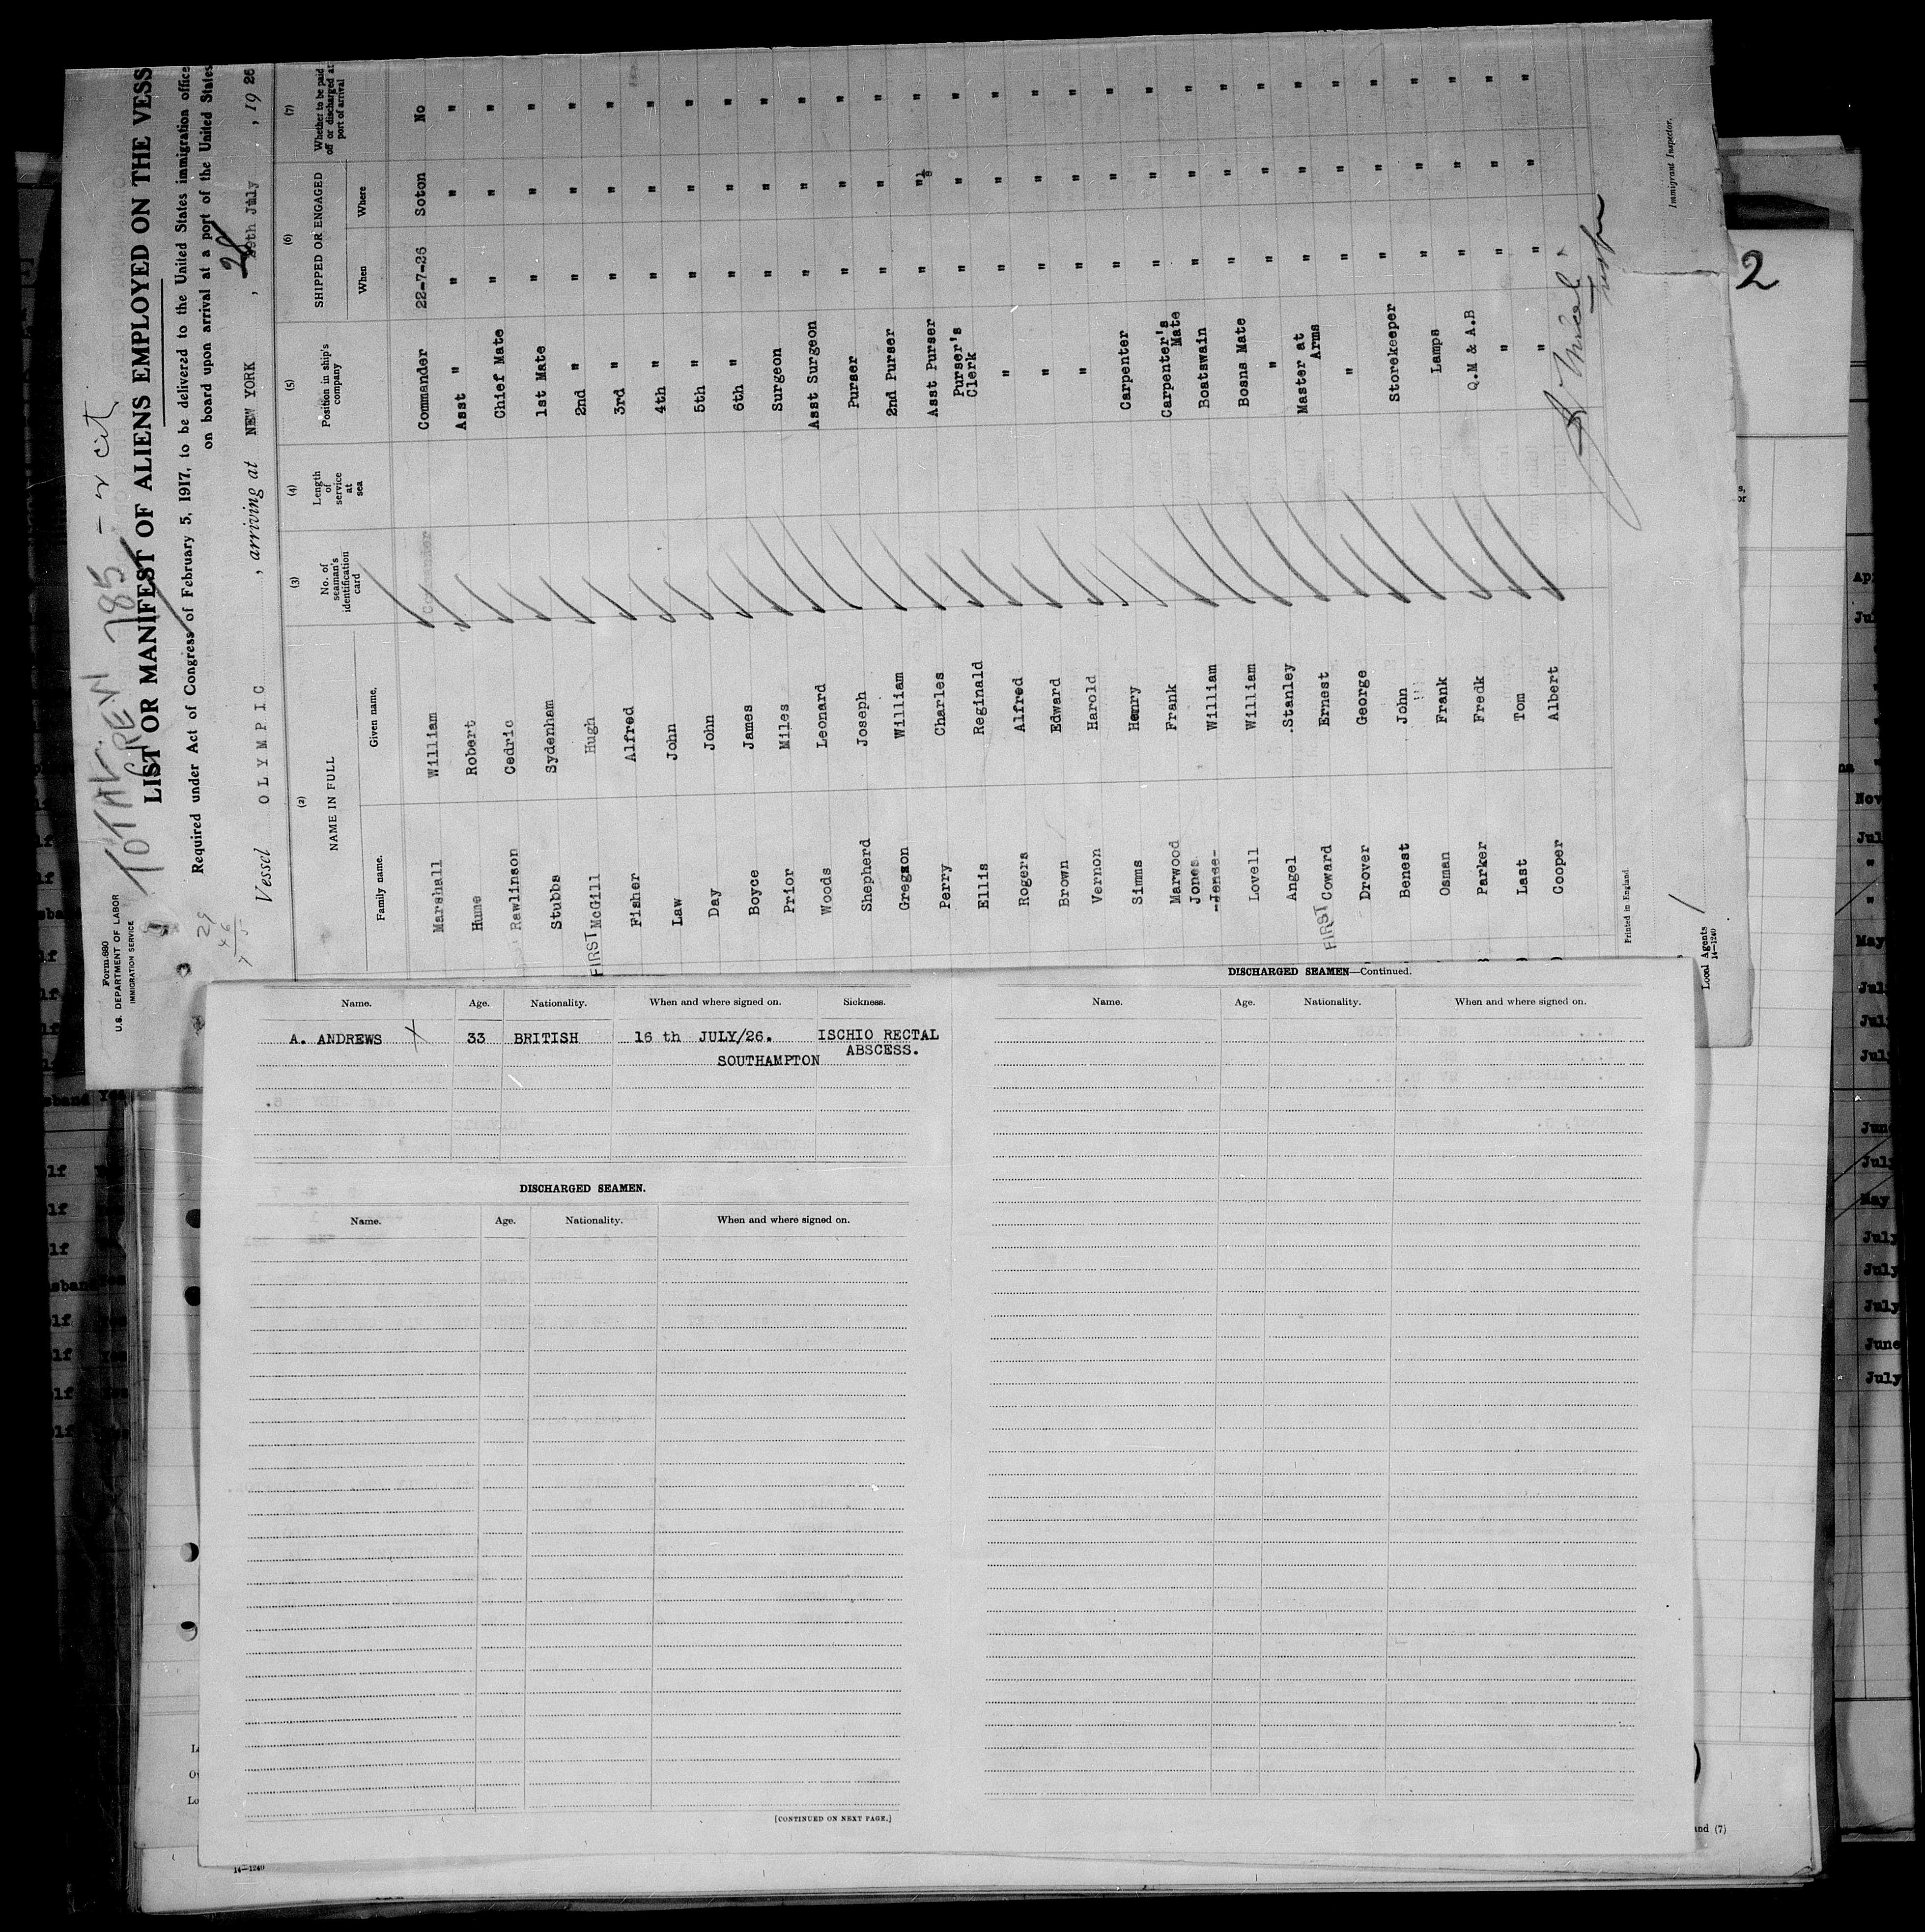 Form 680
U.S. DEPARTMENT OF LABOR
IMMIGRATION SERVICE
TOTAL CREW 785 - cit
LIST OR MANIFEST OF ALIENS EMPLOYED ON THE VESS
Required under Act of Congress of February 5, 1917, to be delivered to the United States immigration office
on board upon arrival at a port of the United States
29
46
75
Vessel OLYMPIC , arriving at NEW YORK , 28 29th July , 19 26
(2) (3) (4) (5) (6) (7)
NAME IN FULL No. of seaman's identification card Length of service at sea Position in ship's company SHIPPED OR ENGAGED Whether to be paid off or discharged at port of arrival
Family name. Given name. When Where
Marshall William Commander 22-7-26 Soton No
Hume Robert Asst " " " "
Rawlinson Cedric Chief Mate " " "
Stubbs Sydenham 1st Mate " " "
FIRST McGill Hugh 2nd " " " "
Fisher Alfred 3rd " " " "
Law John 4th " " " "
Day John 5th " " " "
Boyce James 6th " " " "
Prior Miles Surgeon " " "
Woods Leonard Asst Surgeon " " "
Shepherd Joseph Purser " " "
Gregson William 2nd Purser " " "
Perry Charles Asst Purser " " "
Ellis Reginald Purser's Clerk " " "
Rogers Alfred " " " "
Brown Edward " " " "
Vernon Harold " " " "
Simms Henry Carpenter " " "
Marwood Frank Carpenter's Mate " " "
Jones
-Jense- William Boatswain " " "
Lovell William Bosns Mate " " "
Angel Stanley " " " "
FIRST Coward Ernest Master at Arms " " "
Drover George " " " "
Benest John Storekeeper " " "
Osman Frank Lamps " " "
Parker Fredk Q.M & A.B " " "
Last Tom " " " "
Cooper Albert " " " "
Printed in England.
Local Agents
14-1240
Immigrant Inspector.
2
Name. Age. Nationality. When and where signed on. Sickness.
A. ANDREWS X 33 BRITISH 16 th JULY/26. ISCHIO RECTAL
SOUTHAMPTON ABSCESS.
DISCHARGED SEAMEN.
Name. Age. Nationality. When and where signed on.
[CONTINUED ON NEXT PAGE.]
DISCHARGED SEAMEN—Continued.
Name. Age. Nationality. When and where signed on.
14-1240
and (7)
Nov
May
June
July
May
July
July
July
June
July